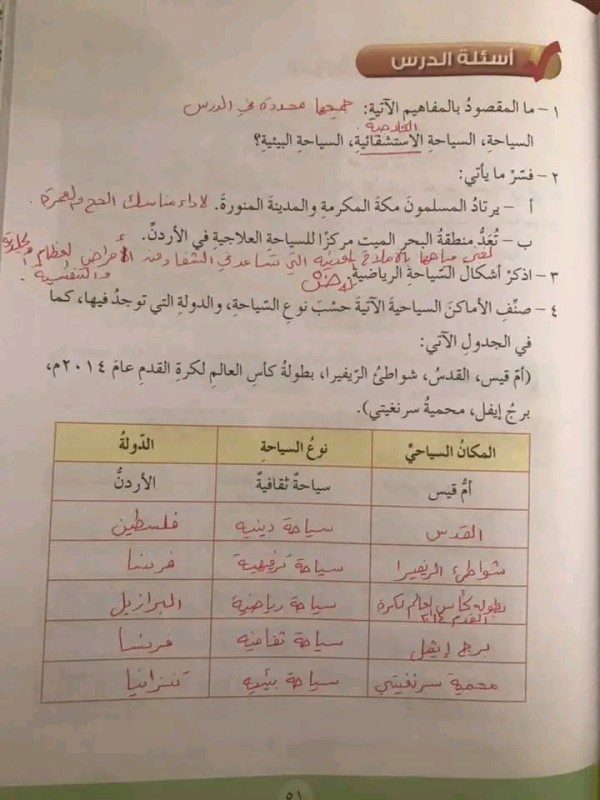 أسئلة الدرس
١ - ما المقصودُ بالمفاهيمِ الآتيةِ: جميعها محددة في الدرس
العلاجية
السياحةِ، السياحةِ الاستشفائيةِ، السياحةِ البيئيةِ؟
٢ - فسّرْ ما يأتي:
أ - يرتادُ المسلمونَ مكةَ المكرمةِ والمدينةَ المنورةَ. لاداء مناسك الحج والعمرة.
ب - تُعَدُّ منطقةُ البحرِ الميتِ مركزًا للسياحةِ العلاجيةِ في الأردنِّ.
لغنى مياهها بالاملاح المعدنية التي تساعد في الشفاء من الأمراض لعظام والجلدية
٣ - اذكرْ أشكالَ السّياحةِ الرياضيةِ. والتنفسية.
٤ - صنِّفِ الأماكنَ السياحيةَ الآتيةَ حسْبَ نوعِ السّياحةِ، والدولةِ التي توجدُ فيها، كما
في الجدولِ الآتي:
(أمّ قيس، القدسُ، شواطئُ الرّيفيرا، بطولةُ كأسِ العالمِ لكرةِ القدمِ عامَ ٢٠١٤م،
برجُ إيفل، محميةُ سرنغيتي).
المكانُ السياحيُّ نوعُ السياحةِ الدّولةُ
أمُّ قيس سياحةٌ ثقافيةٌ الأردنُّ
القدس سياحة دينيه فلسطين
شواطئ الريفيرا سياحة ترفيهية فرنسا
بطوله كأس العالم لكرة القدم ٢٠١٤ سياحة رياضية البرازيل
برج إيفل سياحة ثقافيه فرنسا
محمية سرنغيتي سياحة بيئيه تنزانيا
٥١